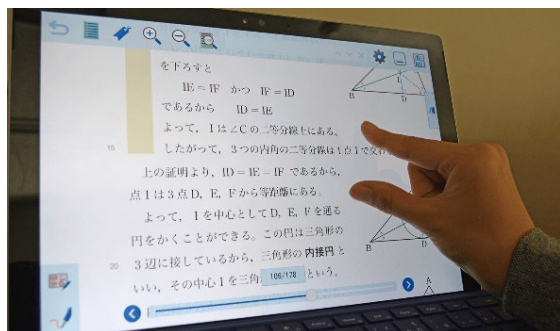 を下ろすと
IE=IF かつ IF=ID
であるから ID=IE
よって，Iは∠Cの二等分線上にある。
15
したがって，3つの内角の二等分線は1点Iで交わ
上の証明より，ID=IE=IF であるから，
点Iは3点D，E，Fから等距離にある。
よって，Iを中心としてD，E，Fを通る
円をかくことができる。この円は三角形の
20
3辺に接しているから，三角形の内接円と
いい，その中心Iを三角
106/128
という。
B
D
I
B
D
A